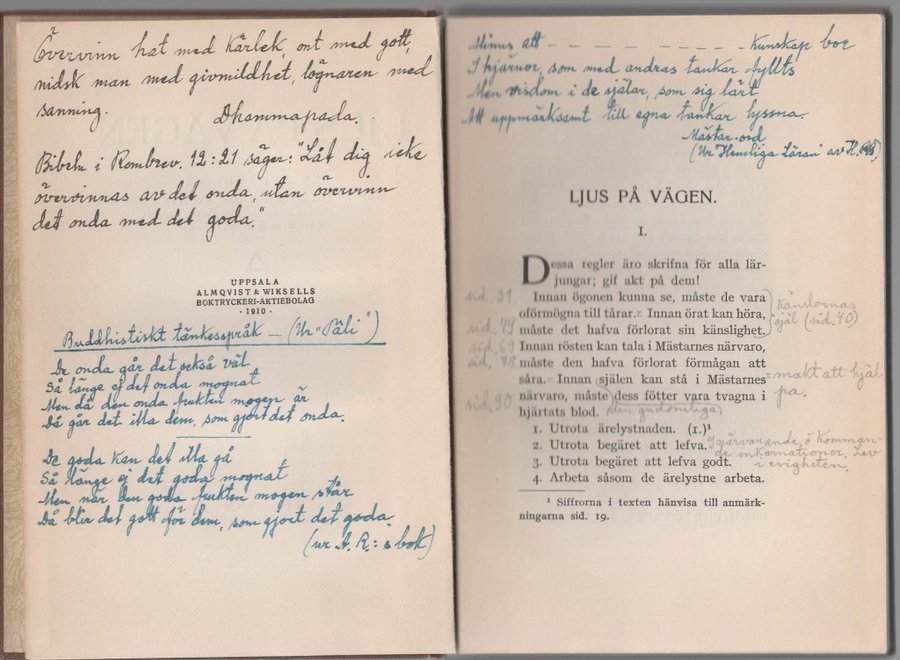 Övervinn hat med kärlek, ont med gott,
nidsk man med givmildhet, lögnaren med
sanning.
Dhammapada.
Bibeln i Rombrev. 12:21 säger: "Låt dig icke
övervinnas av det onda, utan övervinn
det onda med det goda."
UPPSALA
ALMQVIST & WIKSELLS
BOKTRYCKERI-AKTIEBOLAG
· 1910 ·
Buddhistiskt tänkespråk – (Ur "Pâli")
De onda går det också väl
Så länge ej det onda mognat
Men då den onda frukten mogen är
Då går det illa dem, som gjort det onda.
De goda kan det illa gå
Så länge ej det goda mognat
Men när den goda frukten mogen står
Då blir det gott för dem, som gjort det goda.
(ur A. R.:s bok)
Minns att – – – – – – – – – Kunskap bor
I hjärnor, som med andras tankar fyllts
Men visdom i de själar, som sig lärt
Att uppmärksamt till egna tankar lyssna.
Mästar-ord
(Ur "Hemliga Läran" av H.P.B.)
LJUS PÅ VÄGEN.
I.
Dessa regler äro skrifna för alla lär-
jungar; gif akt på dem!
sid. 31 Innan ögonen kunna se, måste de vara
oförmögna till tårar. = Innan örat kan höra,
sid. 49 måste det hafva förlorat sin känslighet.
Känslornas
själ (sid. 40)
sid. 69 Innan rösten kan tala i Mästarnes närvaro,
sid. 78 måste den hafva förlorat förmågan att
såra. = Innan själen kan stå i Mästarnes
= makt att hjäl-
pa.
sid. 90 närvaro, måste dess fötter vara tvagna i
hjärtats blod. (den gudomliga)
1. Utrota ärelystnaden. (1.)¹
2. Utrota begäret att lefva.
I närvarande o komman-
de inkarnationer. Lev
i evigheten.
3. Utrota begäret att lefva godt.
4. Arbeta såsom de ärelystne arbeta.
¹ Siffrorna i texten hänvisa till anmärk-
ningarna sid. 19.